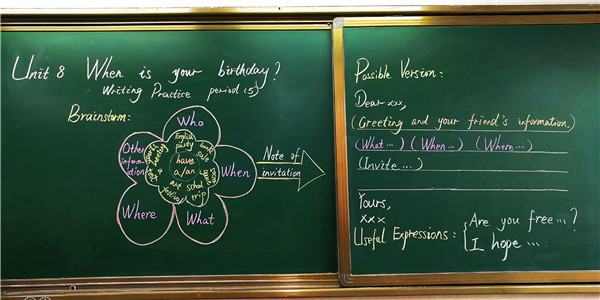 Unit 8 When is your birthday?
Writing Practice period (5)
Brainstorm:
Who
When
What
Where
Other
infor-
mation
English
party
book
sale
school
trip
art
festival
have
a/an
Note of
invitation
Possible Version:
Dear xxx,
(Greeting and your friend's information.)
(What...) (When...) (Where...)
(Invite...)
Yours,
xxx
Useful Expressions:
Are you free...?
I hope ...